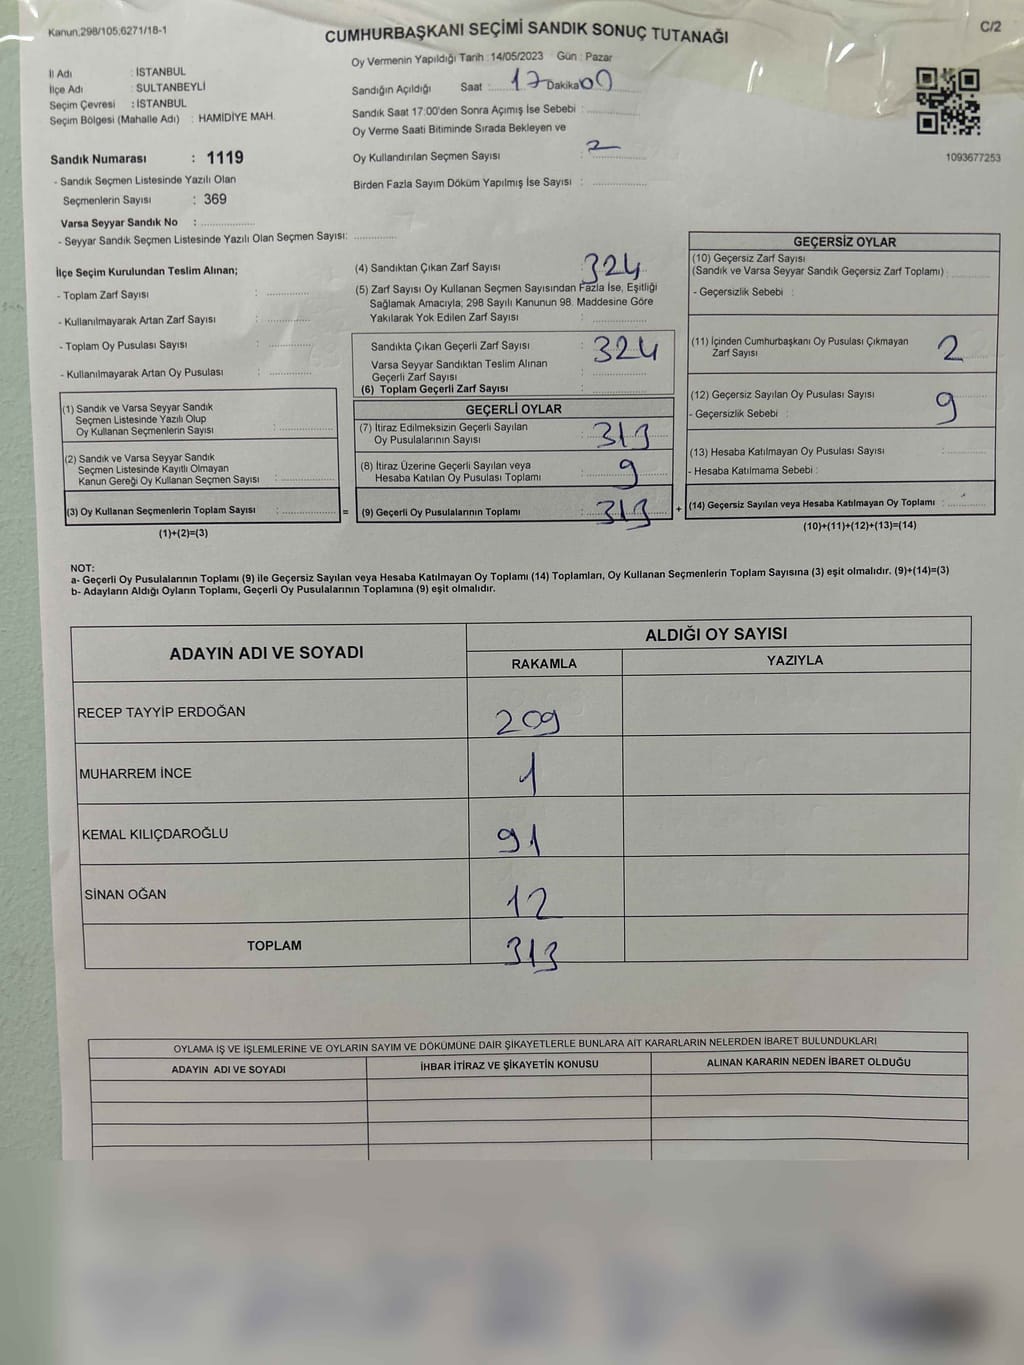 Kanun,298/105,6271/18-1
CUMHURBAŞKANI SEÇİMİ SANDIK SONUÇ TUTANAĞI
C/2
İl Adı : İSTANBUL
İlçe Adı : SULTANBEYLİ
Seçim Çevresi : İSTANBUL
Seçim Bölgesi (Mahalle Adı) : HAMİDİYE MAH.
Sandık Numarası : 1119
- Sandık Seçmen Listesinde Yazılı Olan
Seçmenlerin Sayısı : 369
Varsa Seyyar Sandık No :
- Seyyar Sandık Seçmen Listesinde Yazılı Olan Seçmen Sayısı:
Oy Vermenin Yapıldığı Tarih :14/05/2023 Gün : Pazar
Sandığın Açıldığı Saat : 17 Dakika 00
Sandık Saat 17:00'den Sonra Açımış İse Sebebi :
Oy Verme Saati Bitiminde Sırada Bekleyen ve
Oy Kullandırılan Seçmen Sayısı : 2
Birden Fazla Sayım Döküm Yapılmış İse Sayısı :
1093677253
İlçe Seçim Kurulundan Teslim Alınan;
- Toplam Zarf Sayısı :
- Kullanılmayarak Artan Zarf Sayısı :
- Toplam Oy Pusulası Sayısı :
- Kullanılmayarak Artan Oy Pusulası :
(1) Sandık ve Varsa Seyyar Sandık
Seçmen Listesinde Yazılı Olup
Oy Kullanan Seçmenlerin Sayısı :
(2) Sandık ve Varsa Seyyar Sandık
Seçmen Listesinde Kayıtlı Olmayan
Kanun Gereği Oy Kullanan Seçmen Sayısı :
(3) Oy Kullanan Seçmenlerin Toplam Sayısı : =
(1)+(2)=(3)
(4) Sandıktan Çıkan Zarf Sayısı : 324
(5) Zarf Sayısı Oy Kullanan Seçmen Sayısından Fazla İse, Eşitliği
Sağlamak Amacıyla; 298 Sayılı Kanunun 98. Maddesine Göre
Yakılarak Yok Edilen Zarf Sayısı :
Sandıkta Çıkan Geçerli Zarf Sayısı : 324
Varsa Seyyar Sandıktan Teslim Alınan
Geçerli Zarf Sayısı :
(6) Toplam Geçerli Zarf Sayısı :
GEÇERLİ OYLAR
(7) İtiraz Edilmeksizin Geçerli Sayılan
Oy Pusulalarının Sayısı : 313
(8) İtiraz Üzerine Geçerli Sayılan veya
Hesaba Katılan Oy Pusulası Toplamı : 9
(9) Geçerli Oy Pusulalarının Toplamı : 313 +
GEÇERSİZ OYLAR
(10) Geçersiz Zarf Sayısı
(Sandık ve Varsa Seyyar Sandık Geçersiz Zarf Toplamı) :
- Geçersizlik Sebebi :
(11) İçinden Cumhurbaşkanı Oy Pusulası Çıkmayan
Zarf Sayısı : 2
(12) Geçersiz Sayılan Oy Pusulası Sayısı : 9
- Geçersizlik Sebebi :
(13) Hesaba Katılmayan Oy Pusulası Sayısı :
- Hesaba Katılmama Sebebi :
(14) Geçersiz Sayılan veya Hesaba Katılmayan Oy Toplamı :
(10)+(11)+(12)+(13)=(14)
NOT:
a- Geçerli Oy Pusulalarının Toplamı (9) ile Geçersiz Sayılan veya Hesaba Katılmayan Oy Toplamı (14) Toplamları, Oy Kullanan Seçmenlerin Toplam Sayısına (3) eşit olmalıdır. (9)+(14)=(3)
b- Adayların Aldığı Oyların Toplamı, Geçerli Oy Pusulalarının Toplamına (9) eşit olmalıdır.
ADAYIN ADI VE SOYADI
ALDIĞI OY SAYISI
RAKAMLA YAZIYLA
RECEP TAYYİP ERDOĞAN 209
MUHARREM İNCE 1
KEMAL KILIÇDAROĞLU 91
SİNAN OĞAN 12
TOPLAM 313
OYLAMA İŞ VE İŞLEMLERİNE VE OYLARIN SAYIM VE DÖKÜMÜNE DAİR ŞİKAYETLERLE BUNLARA AİT KARARLARIN NELERDEN İBARET BULUNDUKLARI
ADAYIN ADI VE SOYADI İHBAR İTİRAZ VE ŞİKAYETİN KONUSU ALINAN KARARIN NEDEN İBARET OLDUĞU